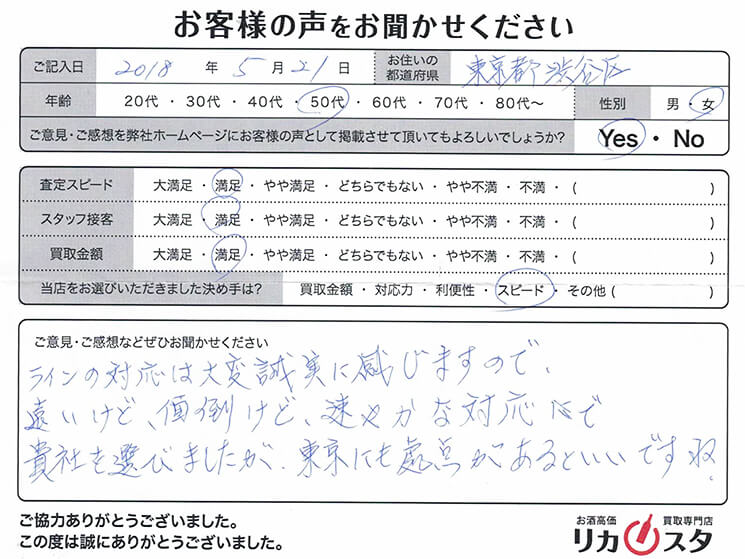 お客様の声をお聞かせください
ご記入日 2018 年 5 月 21 日 お住いの都道府県 東京都渋谷区
年齢 20代 ・ 30代 ・ 40代 ・ 50代 ・ 60代 ・ 70代 ・ 80代〜 性別 男 ・ 女
ご意見・ご感想を弊社ホームページにお客様の声として掲載させて頂いてもよろしいでしょうか? Yes ・ No
査定スピード 大満足 ・ 満足 ・ やや満足 ・ どちらでもない ・ やや不満 ・ 不満 ・ ( )
スタッフ接客 大満足 ・ 満足 ・ やや満足 ・ どちらでもない ・ やや不満 ・ 不満 ・ ( )
買取金額 大満足 ・ 満足 ・ やや満足 ・ どちらでもない ・ やや不満 ・ 不満 ・ ( )
当店をお選びいただきました決め手は? 買取金額 ・ 対応力 ・ 利便性 ・ スピード ・ その他 ( )
ご意見・ご感想などぜひお聞かせください
ラインの対応は大変誠実に感じますので、
遠いけど、面倒けど、速やかな対応で
貴社を選びましたが、東京にも處点があるといいですね
ご協力ありがとうございました。
この度は誠にありがとうございました。
お酒高価 買取専門店
リカスタ